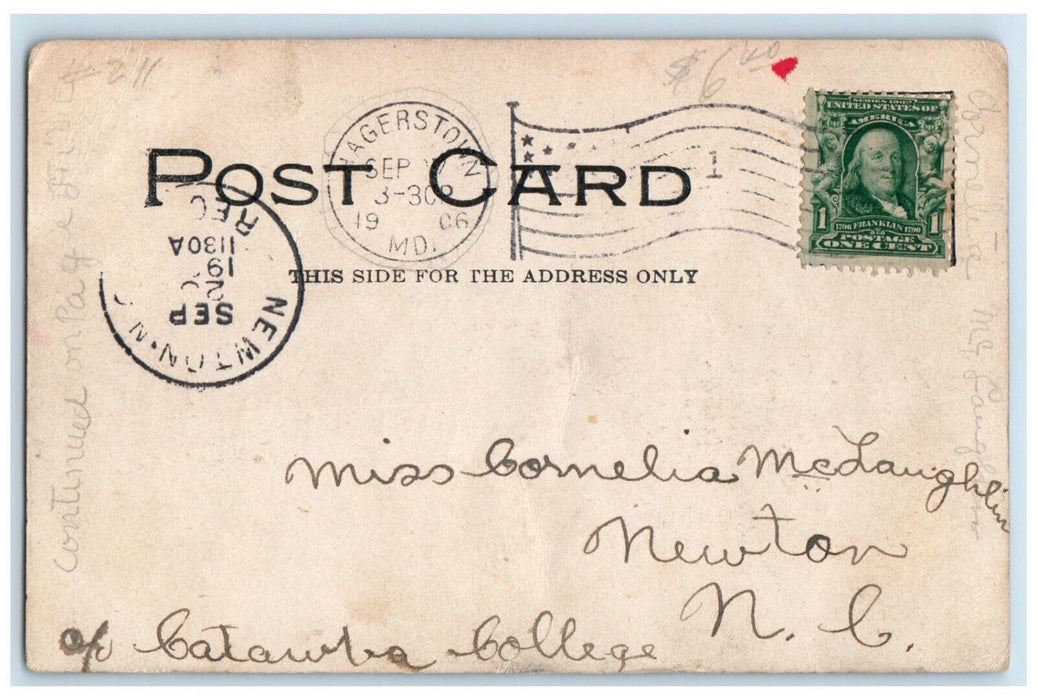 # 211
$6.00
HAGERSTOWN
SEP
3-30P
1906
MD.
1
SERIES 1902
UNITED STATES OF
AMERICA
1 1
1706 FRANKLIN 1790
POSTAGE
ONE CENT
POST CARD
THIS SIDE FOR THE ADDRESS ONLY
NEWTON. N.C.
SEP
1130A
REC'D
Miss Cornelia McLaughlin
Newton
N. C.
c/o Catawba College
continued on Page
Cornelia McLaughlin